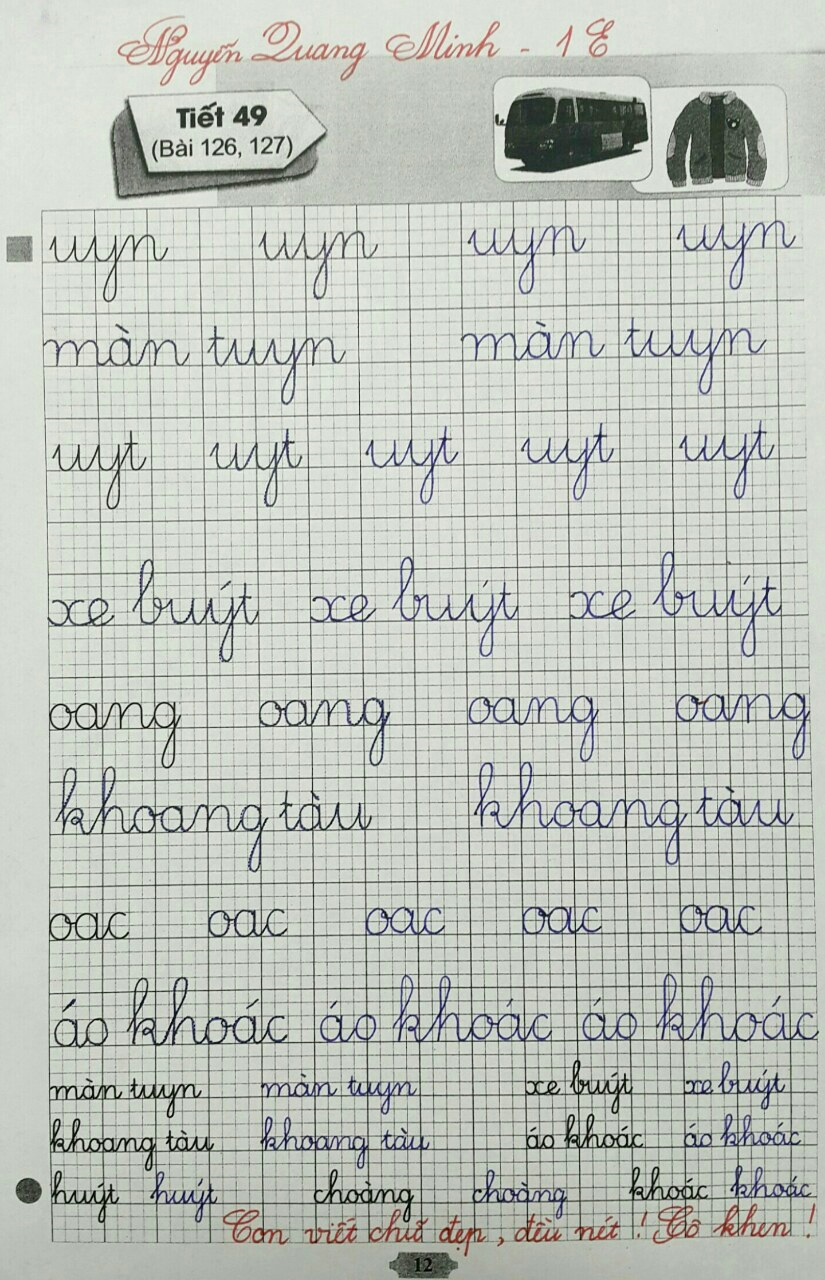 Nguyễn Quang Minh - 1E
Tiết 49
(Bài 126, 127)
uyn uyn uyn uyn
màn tuyn màn tuyn
uyt uyt uyt uyt uyt
xe buýt xe buýt xe buýt
oang oang oang oang
khoang tàu khoang tàu
oac oac oac oac oac
áo khoác áo khoác áo khoác
màn tuyn màn tuyn xe buýt xe buýt
khoang tàu khoang tàu áo khoác áo khoác
huýt huýt choàng choàng khoác khoác
Con viết chữ đẹp, đều nét! Cô khen!
12